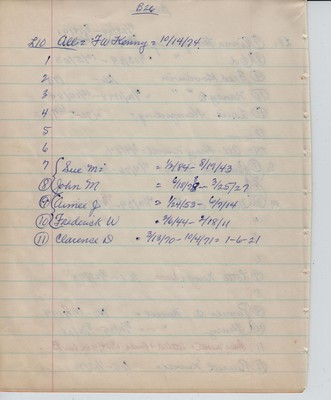 BLG
210 All = F.W. Kenny = 10/14/74.
1
2
3
4
5
6
7 Sue M = 1/2/84 - 8/19/43
8 John M = - 3/25/27
9 Aimee J = 1/24/53 - 6/9/14
10 Frederick W = 9/6/44 - 2/18/11
11 Clarence D - 3/13/70 - 10/4/71 = 1-6-21